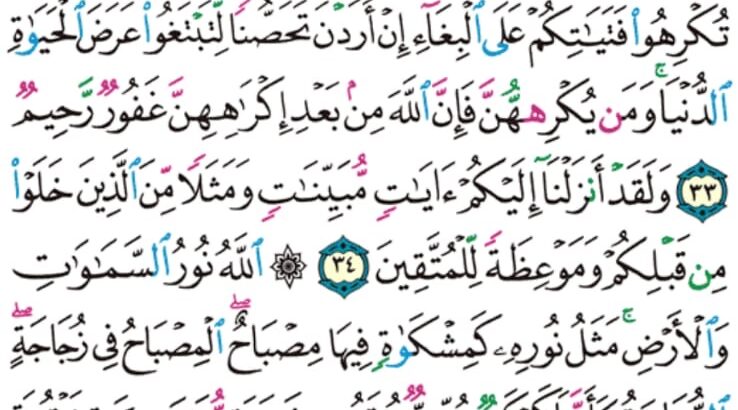 تُكْرِهُوا۟ فَتَيَـٰتِكُمْ عَلَى ٱلْبِغَآءِ إِنْ أَرَدْنَ تَحَصُّنًا لِّتَبْتَغُوا۟ عَرَضَ ٱلْحَيَوٰةِ
ٱلدُّنْيَا ۚ وَمَن يُكْرِههُّنَّ فَإِنَّ ٱللَّهَ مِنۢ بَعْدِ إِكْرَٰهِهِنَّ غَفُورٌ رَّحِيمٌ
٣٣ وَلَقَدْ أَنزَلْنَآ إِلَيْكُمْ ءَايَـٰتٍ مُّبَيِّنَـٰتٍ وَمَثَلًا مِّنَ ٱلَّذِينَ خَلَوْا۟
مِن قَبْلِكُمْ وَمَوْعِظَةً لِّلْمُتَّقِينَ ٣٤ ۞ ٱللَّهُ نُورُ ٱلسَّمَـٰوَٰتِ
وَٱلْأَرْضِ ۚ مَثَلُ نُورِهِۦ كَمِشْكَوٰةٍ فِيهَا مِصْبَاحٌ ۖ ٱلْمِصْبَاحُ فِى زُجَاجَةٍ ۖ